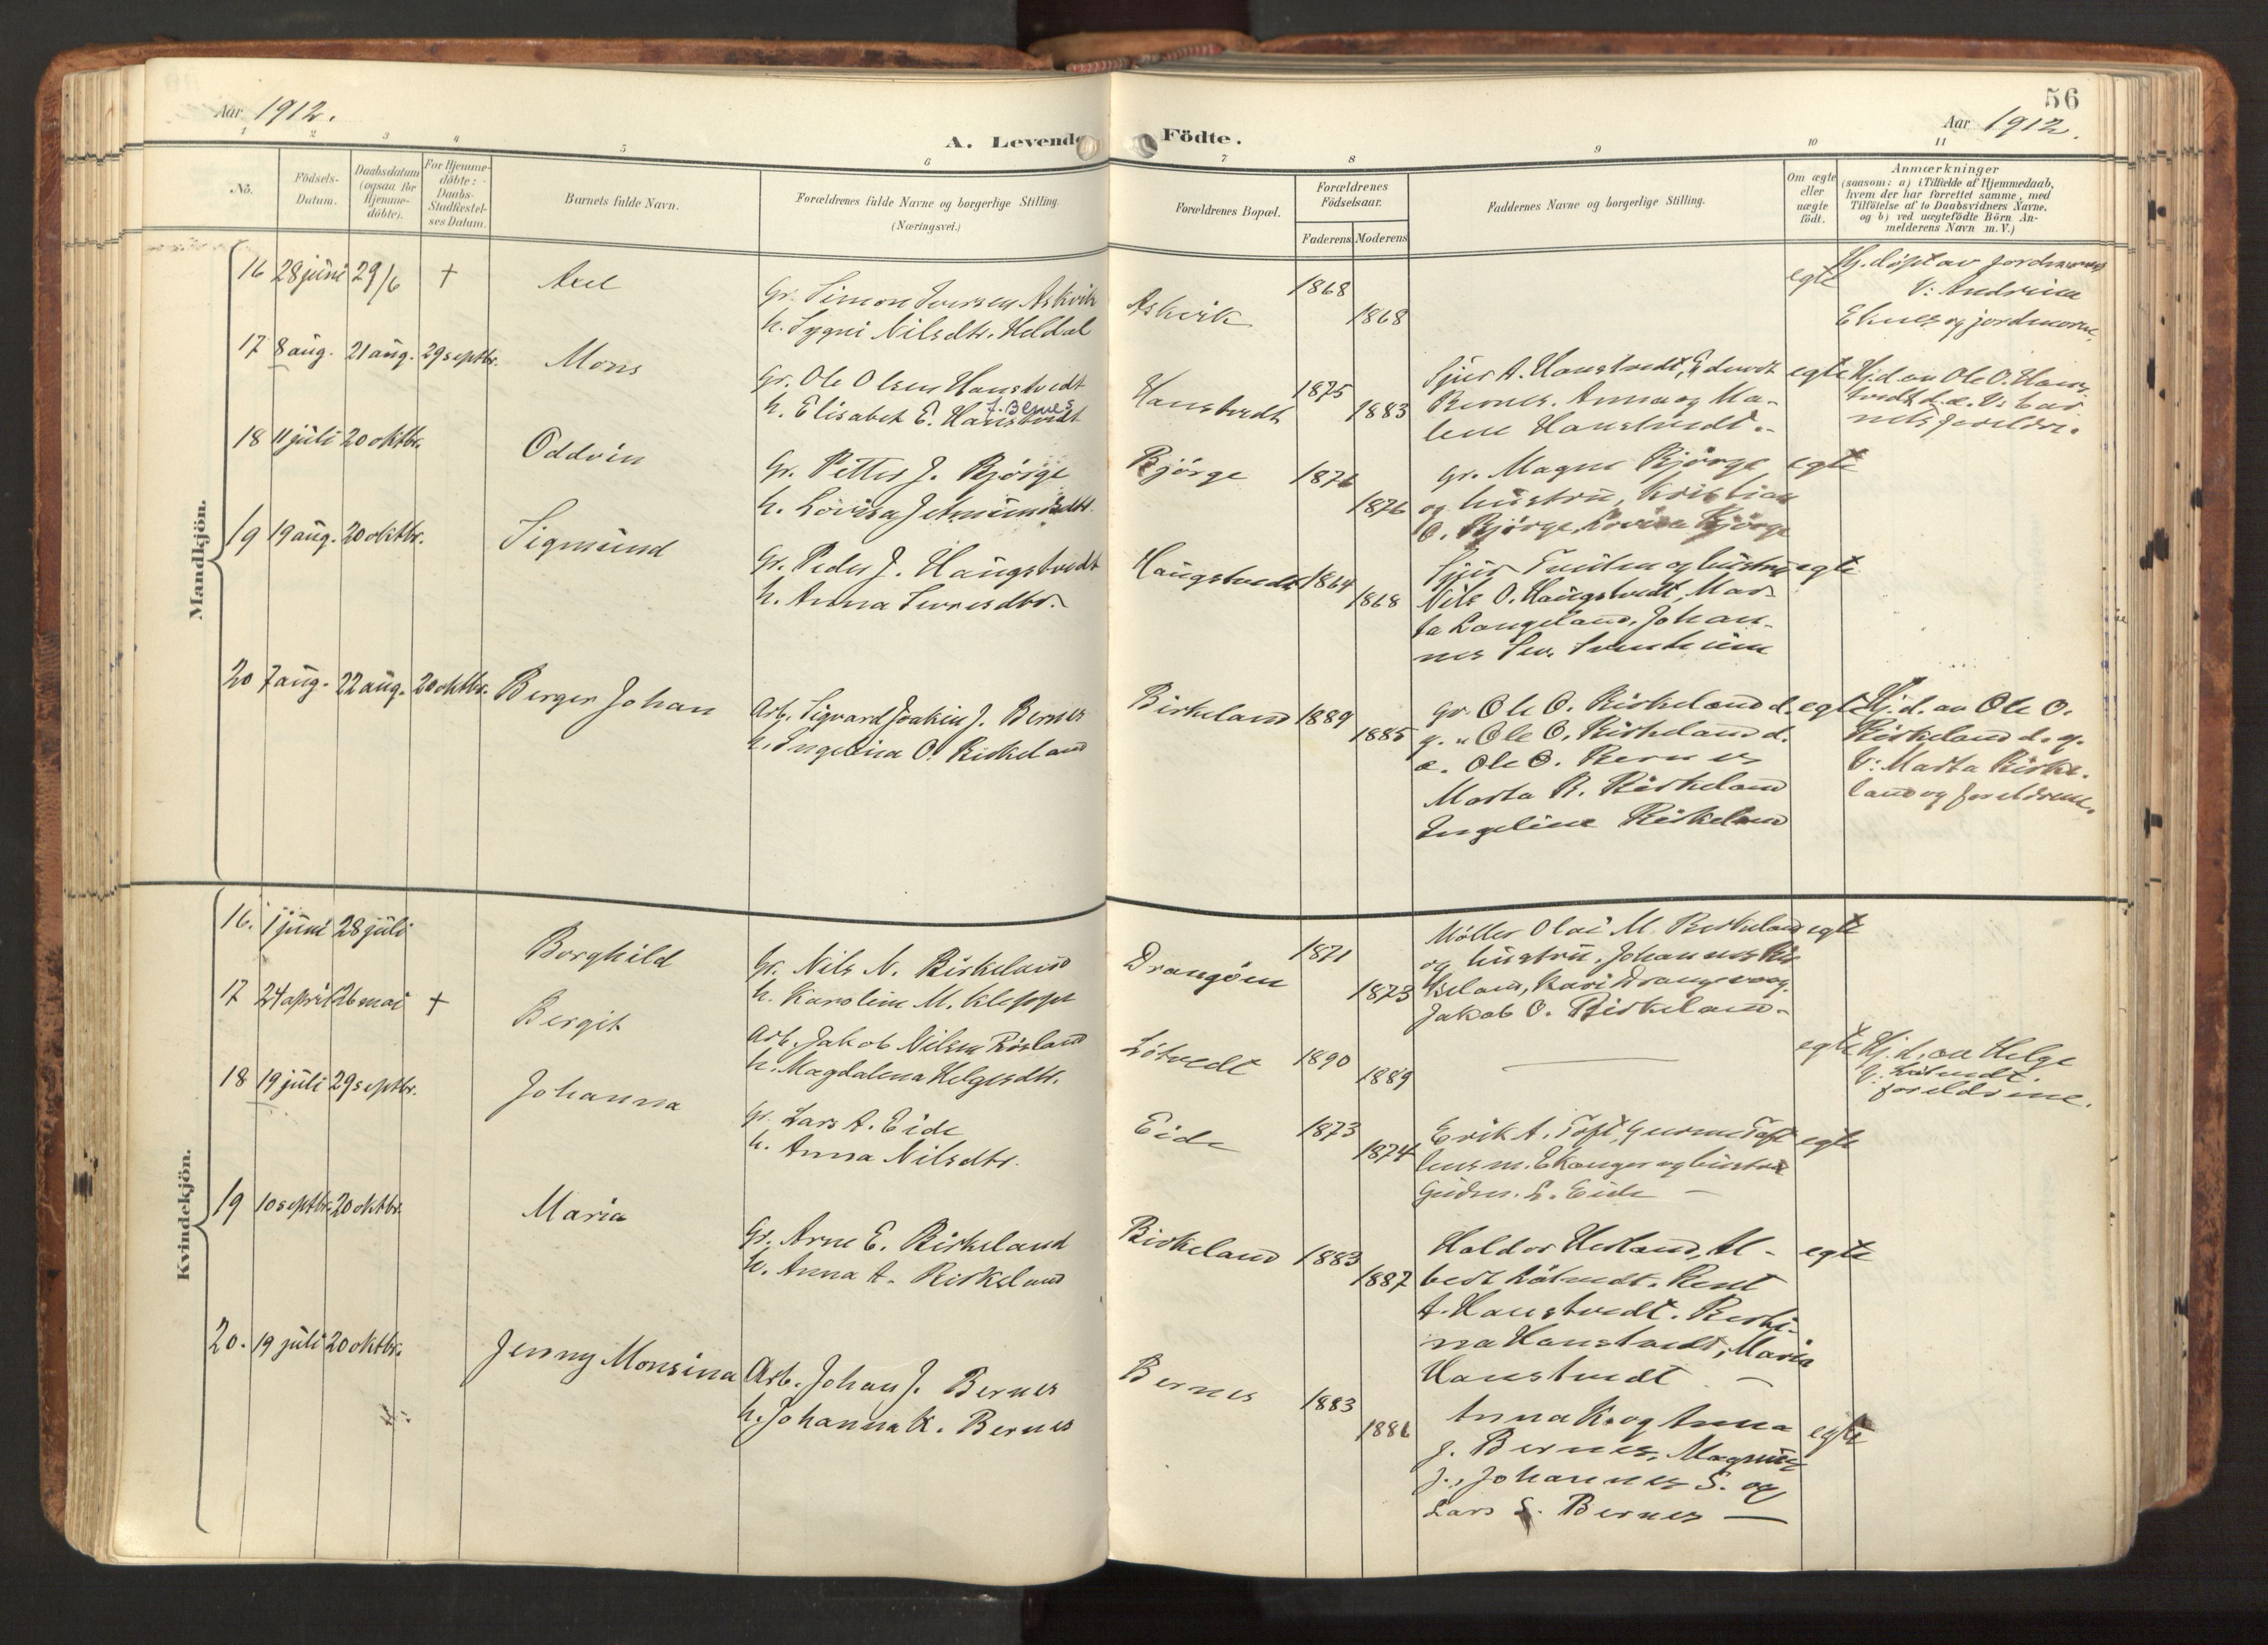 56
Aar 1912.
A. Levende Födte.
Aar 1912.
1 2 3 4 5 6 7 8 9 10 11
No.
Födsels-Datum.
Daabsdatum (ogsaa for Hjemme-döbte).
For Hjemme-döbte: Daabs-Stadfæstel-ses Datum.
Barnets fulde Navn.
Forældrenes fulde Navne og borgerlige Stilling.
(Næringsvei.)
Forældrenes Bopæl.
Forældrenes Födselsaar.
Faderens Moderens
Faddernes Navne og borgerlige Stilling.
Om ægte eller uægte födt.
Anmærkninger
(saasom: a) i Tilfælde af Hjemmedaab,
hvem der har forrettet samme, med
Tilföielse af to Daabsvidners Navne,
og b) ved uægtefödte Börn An-
melderens Navn m. V.)
Mandkjön.
16 28 juni 29/6 † Axel
Gr. Simon Iversen Askvik
h. Sygni Nilsdtr. Heldal
Askvik 1868 1868
egte
Hj. döpt av jordmoren
V: Andrina
Eknes og jordmoren.
17 8 aug. 21 aug. 29 septbr. Mons
Gr. Ole Olsen Haustvedt
J. Bernes
h. Elisabet E. Haustvedt
Haustvedt 1875 1883
Sjur A. Haustvedt, Edvardt
Bernes. Anna og Ma-
lene Haustvedt.
egte
Hj. d. av Ole O. Haus-
tvedt d. æ. V: bar-
nets foreldre.
18 11 juli 20 oktbr. Oddvin
Gr. Petter J. Bjørge
h. Lovisa Jetmundsdtr.
Bjørge 1876 1876
Gr. Magne Bjørge
og hustru, Kristian
O. Bjørge, Lovisa Bjørge
egte
19 19 aug. 20 oktbr. Sigmund
Gr. Peder J. Haugstvedt
h. Anna Iversdtr.
Haugstvedt 1864 1868
Sjur Tveiten og hustru
Nils O. Haugstvedt, Mar-
ta Langeland, Johan-
nes
egte
20 7 aug. 22 aug. 20 oktbr. Berger Johan
Arb. Sigvard Joakim J. Bernes
h. Ingelina O. Birkeland
Birkeland 1889 1885
Gr. Ole O. Birkeland d.
y. Ole O. Birkeland d.
æ. Ole O. Bernes
Marta B. Birkeland
Ingeline Birkeland
egte
Hj. d. av Ole O.
Birkeland d. y.
V: Marta Birke-
land og foreldrene.
Kvindekjön.
16. 1 juni 28 juli Borghild
Gr. Nils N. Birkeland
h. Karoline M. Kleppe
Drangöen 1871 1873
Møller Olai M. Birkeland
og hustru, Johannes
Kari Drangevaag.
Jakob O. Birkeland.
egte
17 24 april 26 mai † Bergit
Arb. Jakob Nilsen Røsland
h. Magdalena Helgesdtr.
Løtvedt 1890 1889
—
egte
Hj. d. av Helge
V: Løtvedt.
foreldrene.
18 19 juli 29 septbr. Johanna
Gr. Lars A. Eide
h. Anna Nilsdtr.
Eide 1873 1874
Erik A. Toft, Gurine Toft
lensm. Ekanger og hustru
Gudm. L. Eide —
egte
19 10 septbr. 20 oktbr. Maria
Gr. Arne E. Birkeland
h. Anna A. Birkeland
Birkeland 1883 1887
Haldor Hesland, Al-
bert Løtvedt. Bent
A. Haustvedt. Berti-
na Haustvedt, Maria
Haustvedt —
egte
20. 19 juli 20 oktbr. Jenny Monsina
Arb. Johan J. Bernes
h. Johanna K. Bernes
Bernes 1883 1886
Anna K. og Anna
J. Bernes, Magnus
J., Johannes S. og
Lars S. Bernes —
egte